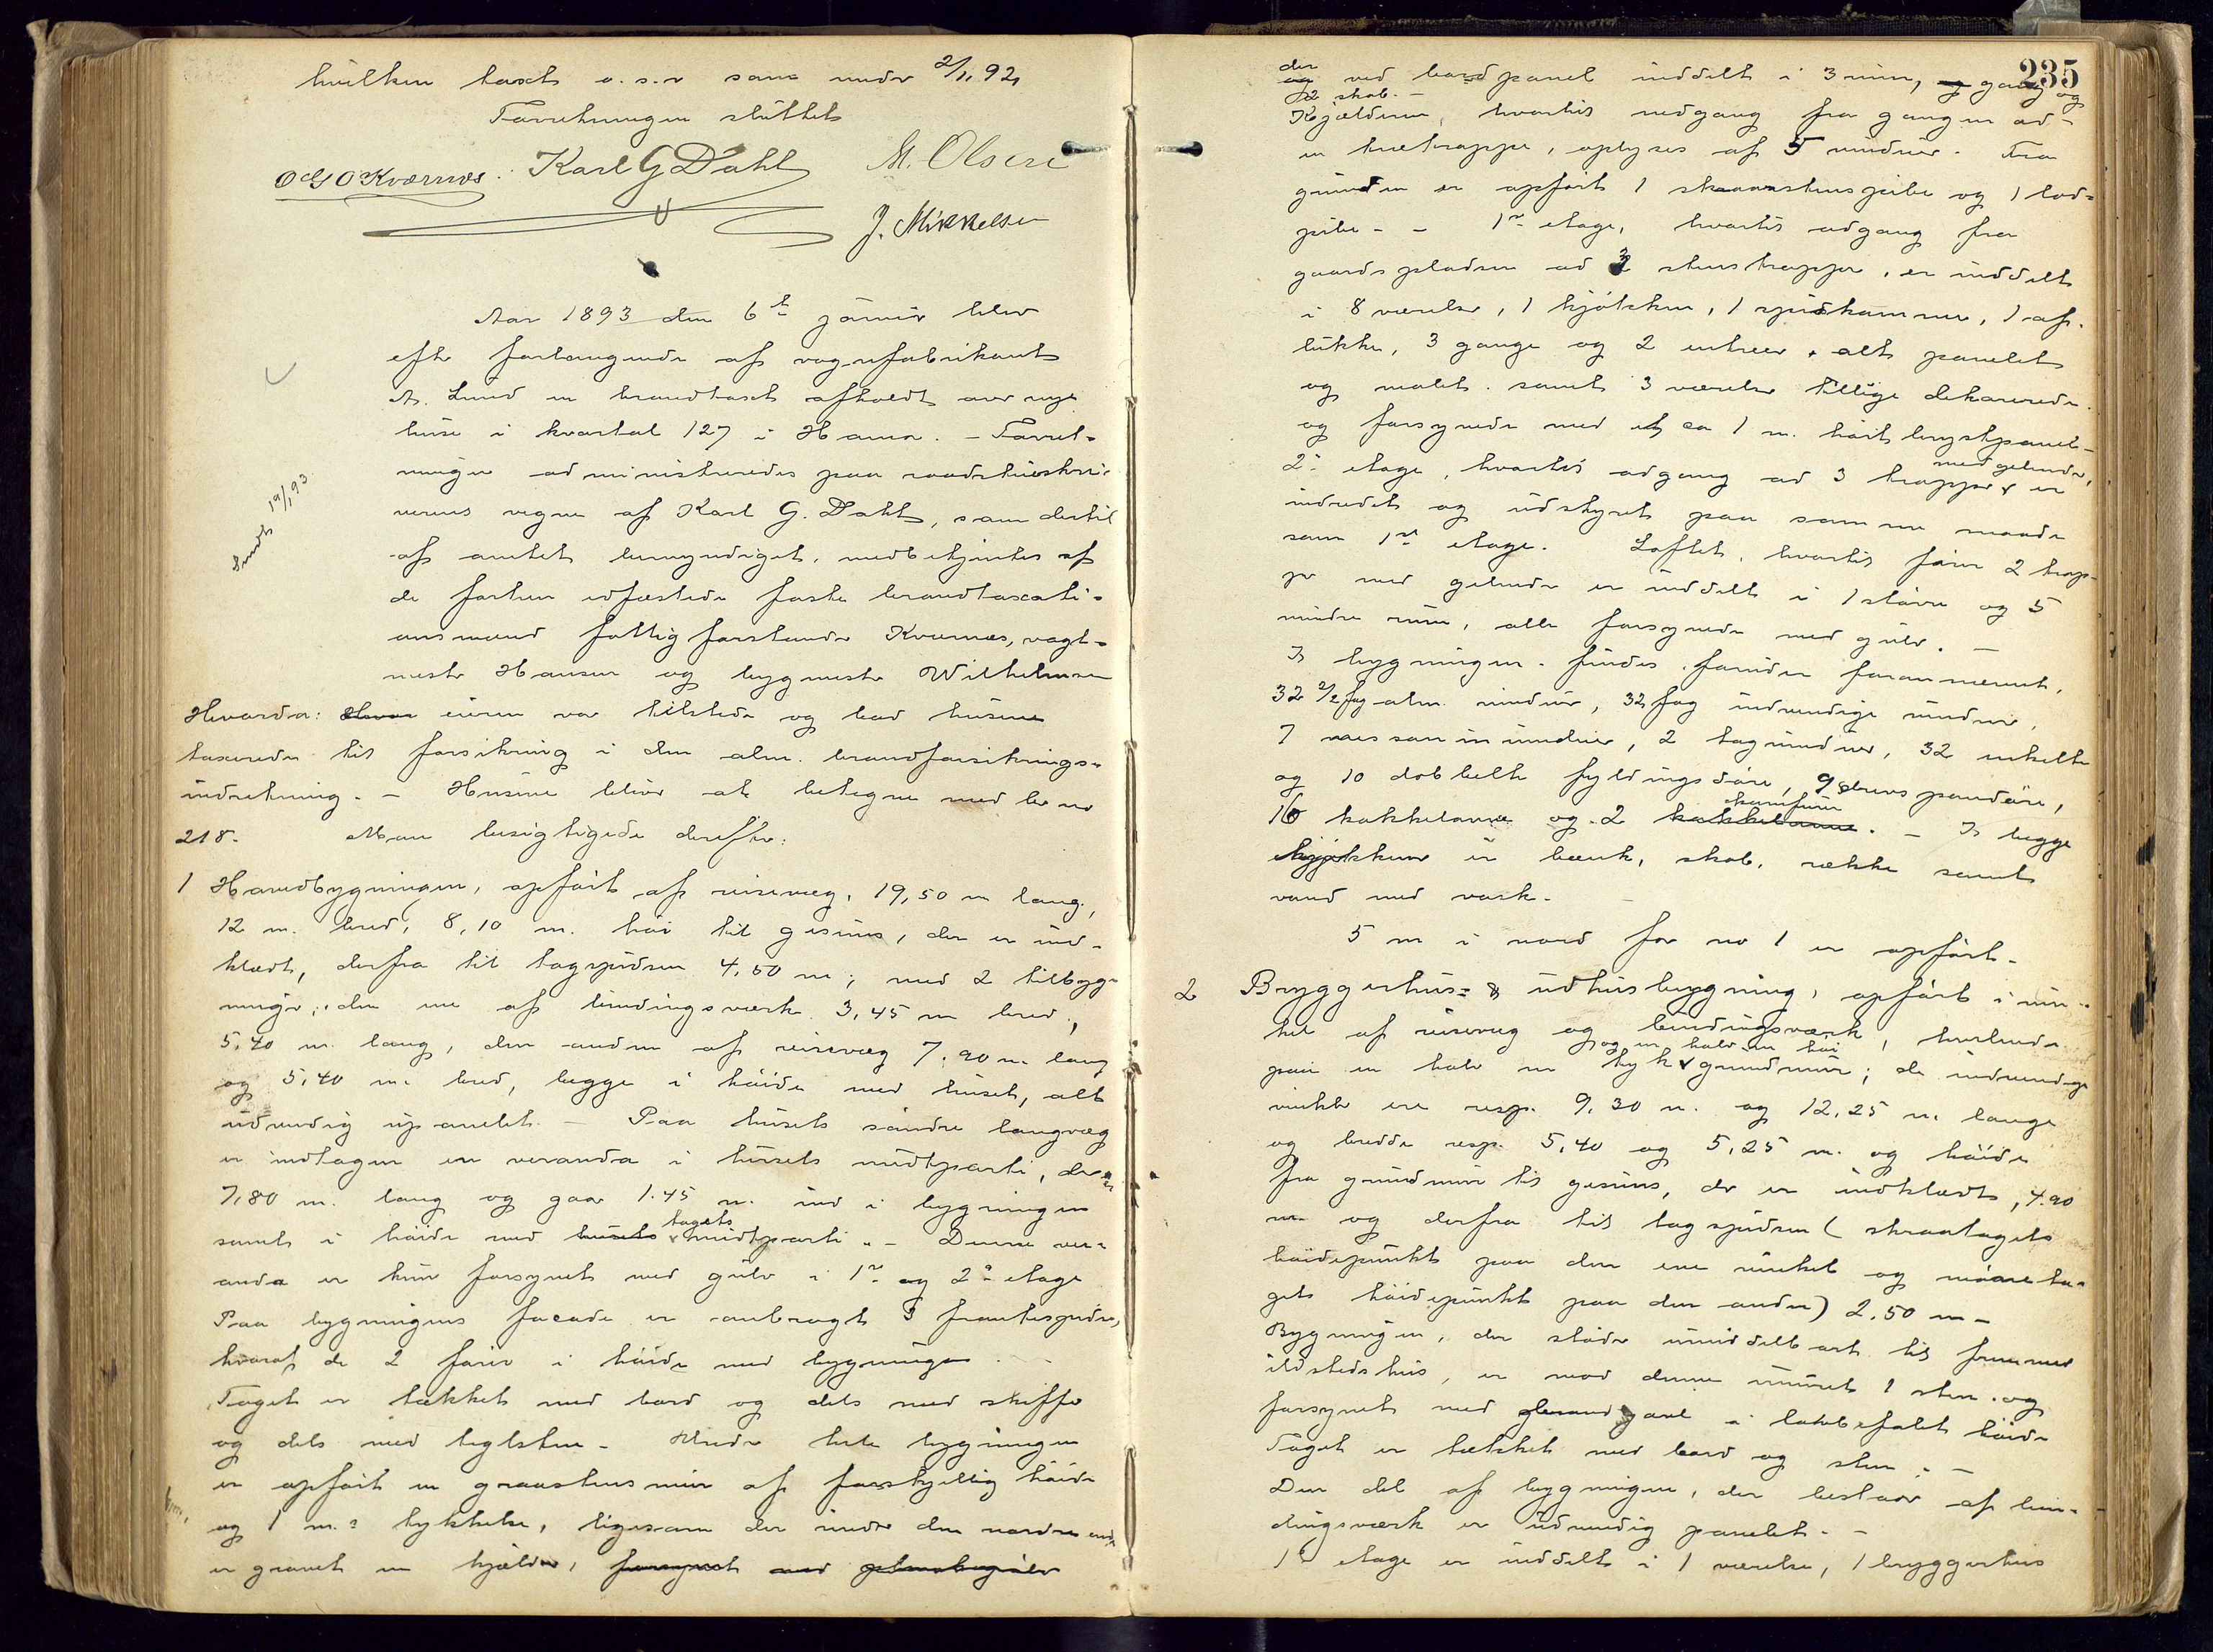 hvilken taxt o. s. v som under 2/11 92
Forretningen sluttet
O G O Kværnes. Karl G Dahl M. Olsen
J. Mikkelsen
Aar 1893 den 6te januar blev
efter forlangende af vognfabrikant
A. Lund en brandtaxt afholdt over nye
huse i kvartal 127 i Hamar. – Forret-
ningen administreredes paa raadstueskri-
verens vegne af Karl G. Dahl, som dertil
af amtet bemyndiget, medbetjentes af
de forhen edfæstede faste brandtaxati-
onsmænd fattigforstander Kværnes, vagt-
mester Hansen og bygmester Wilhelmsen
Sendt 19/1 93.
Hvorda: eieren var tilstede og bad husene
taxerede til forsikring i den alm. brandforsikrings-
indretning. – Husene blive at betegne med br no
218. Man besigtigede derefter:
1 Hovedbygningen, opført af reisverg, 19,50 m lang,
12 m. bred, 8,10 m. høi til gesims, der er ind-
klædt, derfra til tagspidsen 4,50 m; med 2 tilbyg-
ninger, den ene af bindingsværk 3,45 m bred,
5,40 m. lang, den anden af reisverg 7.90 m lang
og 5,40 m. bred, begge i høide med huset, alt
udvendig upanelet. – Paa husets søndre langvæg
er indtagen en veranda i husets midtparti, der er
7,80 m. lang og gaar 1.45 m. ind i bygningen
samt i høide med husets tagets midtparti. – Denne ver-
anda er kun forsynet med gulv i 1ste og 2den etage
Paa bygningens facade er anbragt 3 frontespicer,
hvoraf de 2 føres i høide med bygningen.
Taget er tækket med bord og dels med skiffer
og dels med teglsten. – Under hele bygningen
er opført en graastensmur af forskjellig høide
og 1 m.s tykkelse, ligesom der under den nordre ende
er gravet en kjælder, forsynet med
235
der
og ved bordpanel inddelt i 3 rum, gang og
2 skab. –
Kjælderen, hvortil nedgang fra gangen ad
en trætrappe, oplyses af 5 vinduer. Fra
grunden er opført 1 skorstenspibe og 1 lod-
pibe – – 1ste etage, hvortil adgang fra
gaardspladsen ad 3 stenstrapper, er inddelt
i 8 værelser, 1 kjøkken, 1 spiskammer, 1 af-
lukke, 3 gange og 2 entreer, alt panelet
og malet. samt 3 værelser tillige dekorerede
og forsynede med et ca 1 m. høit brystpanel –
med gelender,
2den etage, hvortil adgang ad 3 trapper er
indredet og udstyret paa samme maade
som 1ste etage. Loftet, hvortil fører 2 trap-
per med gelender er inddelt i 1 større og 5
mindre rum, alle forsynede med gulv. –
I bygningen findes foruden forannævnt,
32 2/2 fag alm. vinduer, 32 fag indvendige vinduer,
7 messaninvinduer, 2 tagvinduer, 32 enkelte
og 10 dobbelte fyldingsdøre, 9 gerespandøre,
kamfun
16 kakkelovne og 2 kakkelovne. – I begge
kjøkkener er bænk, skab, række samt
vand med vask. –
5 m i nord for no 1 er opført –
2 Bryggerhus- & udhusbygning, opført i vin-
kel af reisverg og bindingsværk, hvilende
og en halv m høi
paa en halv m tyk grundmur; de indvendige
vinkler ere resp. 9,30 m. og 12,25 m. lange
og bredde resp. 5,40 og 5,25 m. og høide
fra grundmur til gesims, der er indklædt, 4.90
m. og derfra til tagspidsen (skraatagets
høidepunkt paa den ene vinkel og møneta-
gets høidepunkt paa den anden) 2,50 m –
Bygningen, der støder umiddelbart til fremmed
ildstedshus, er mod denne muret 1 sten og
forsynet med brandgavl i lovbefalet høide
Taget er tækket med bord og sten. –
Den del af bygningen, der bestaar af bin-
dingsværk er udvendig panelet. –
1ste etage er inddelt i 1 værelse, 1 bryggerhus